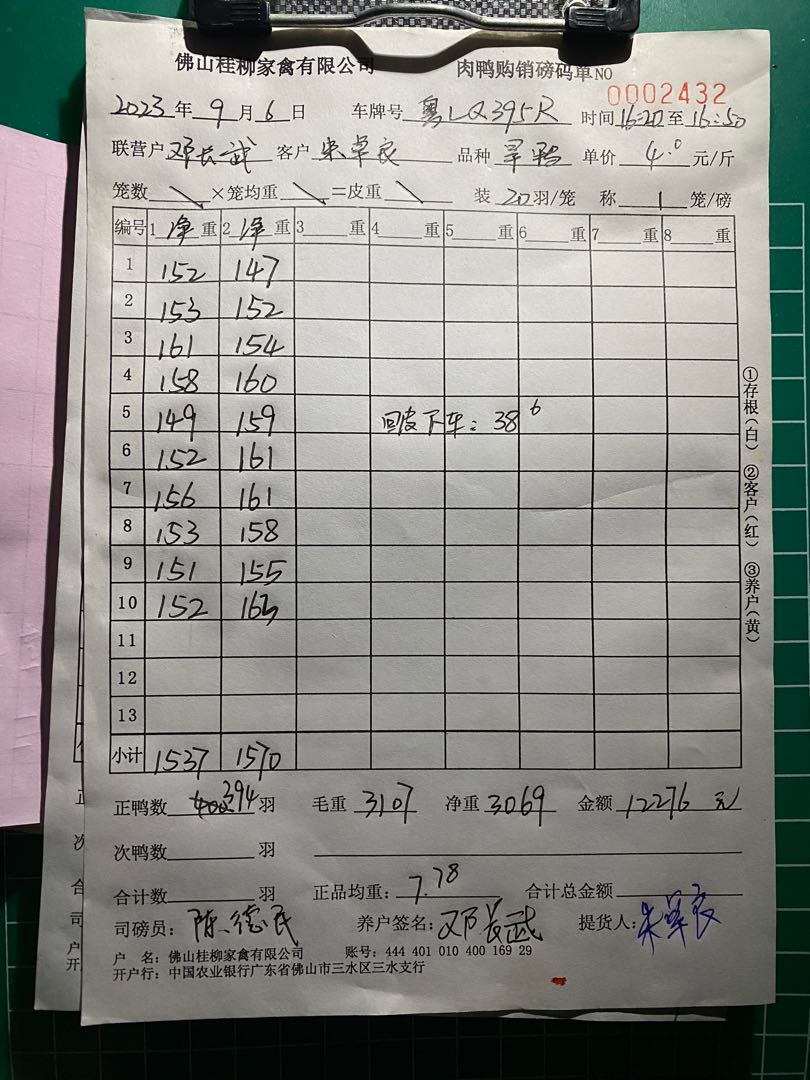 佛山桂柳家禽有限公司 肉鸭购销磅码单 NO 0002432
2023年 9 月 6 日 车牌号 粤LQ395R 时间16:20至16:50
联营户 邓长武 客户 朱卓良 品种 旱鸭 单价 4.0 元/斤
笼数 \ ×笼均重 \ =皮重 \ 装 20 羽/笼 称 1 笼/磅
编号 1 净 重 2 净 重 3 重 4 重 5 重 6 重 7 重 8 重
1 152 147
2 153 152
3 161 154
4 158 160
5 149 159 回皮下车:38 6
6 152 161
7 156 161
8 153 158
9 151 155
10 152 163
11
12
13
小计 1537 1570
正鸭数 394 羽 毛重 3107 净重 3069 金额 12276 元
次鸭数 羽
合计数 羽 正品均重: 7.78 合计总金额
司磅员: 陈德民 养户签名: 邓长武 提货人: 朱卓良
户 名: 佛山桂柳家禽有限公司 账号: 444 401 010 400 169 29
开户行: 中国农业银行广东省佛山市三水区三水支行
①存根(白) ②客户(红) ③养户(黄)